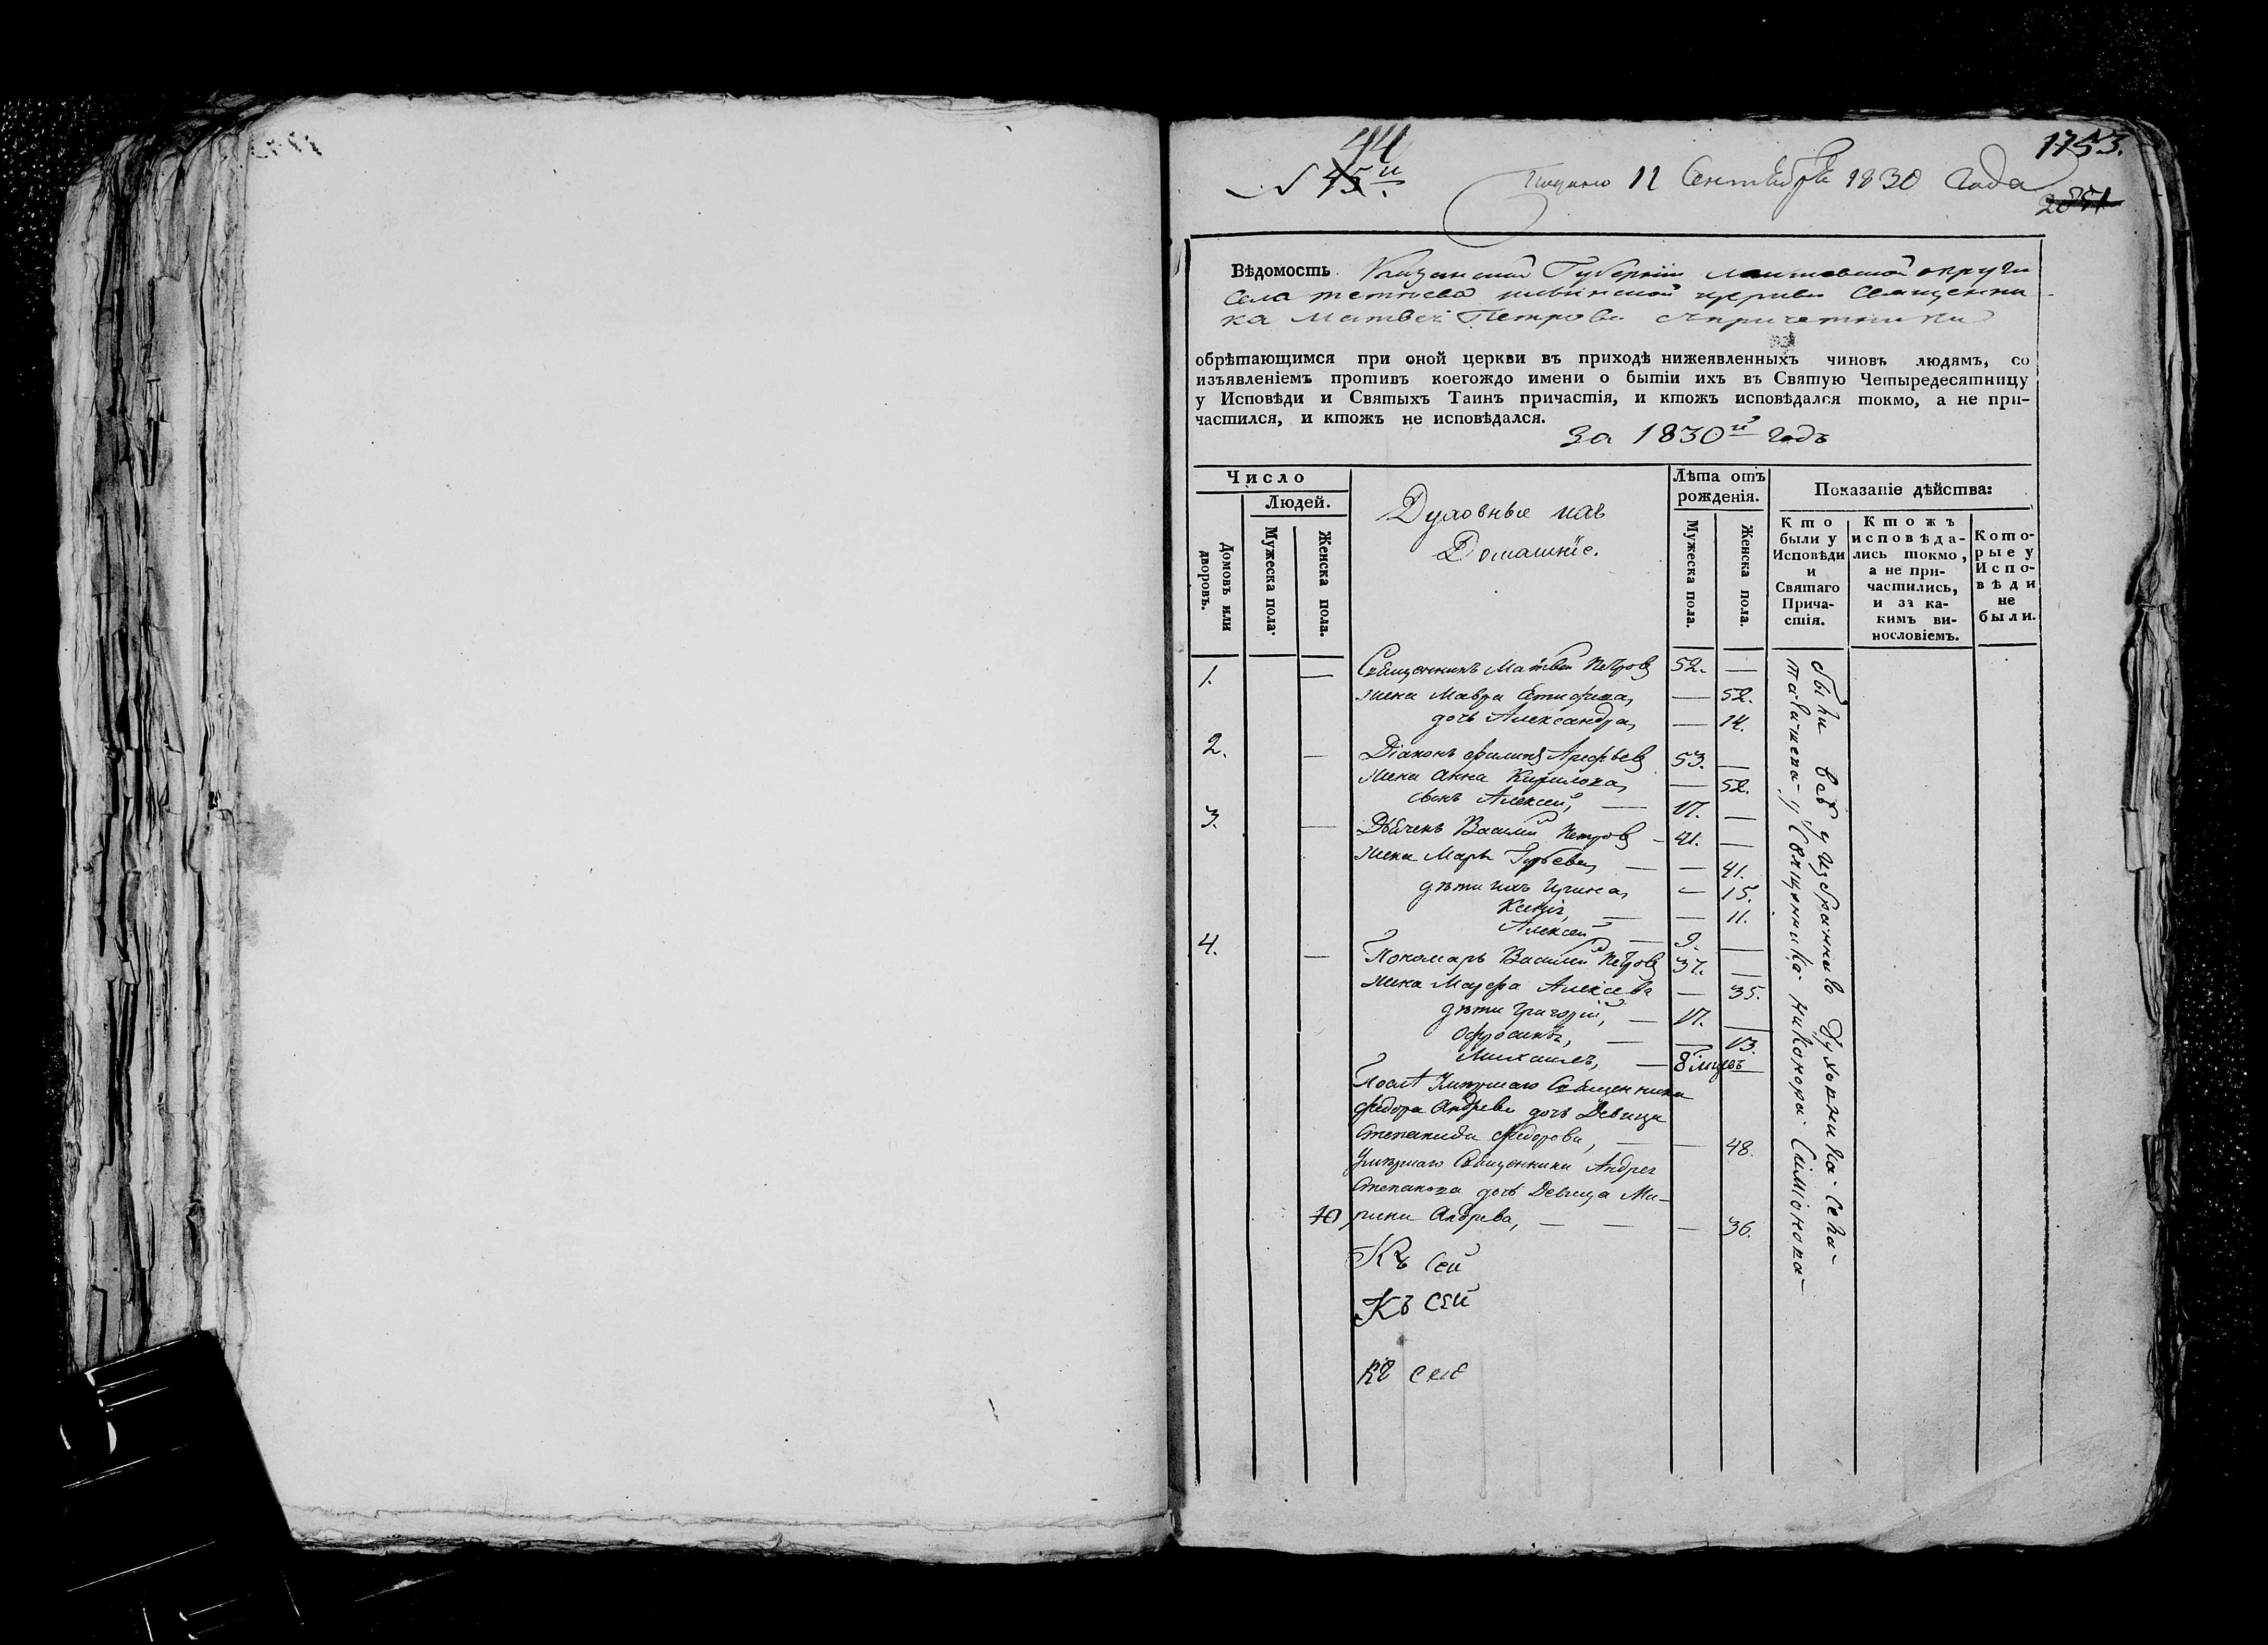 44
1753.
№ 45й
Подано 11 Сентября 1830 Года
2851
Вѣдомость Казанской Губерніи Лаишевской округи
Села тетеева церкви Священни-
ка Матвея Петрова с причетники
обрѣтающимся при оной церкви въ приходѣ нижеявленныхъ чиновъ людямъ, со
изъявленіемъ противъ коегождо имени о бытіи ихъ въ Святую Четыредесятницу
у Исповѣди и Святыхъ Таинъ причастія, и ктожъ исповѣдался токмо, а не при-
частился, и ктожъ не исповѣдался.
За 1830й годъ
Число
Людей.
Домовъ или дворовъ.
Мужеска пола.
Женска пола.
Духовные ихъ
Домашніе.
Лѣта отъ
рожденія.
Мужеска пола.
Женска пола.
Показаніе дѣйства:
Кто
были у
Исповѣди
и
Святаго
Прича-
стія.
Ктожъ
исповѣда-
лись токмо,
а не при-
частились,
и за ка-
кимъ ви-
нословіемъ.
Кото-
рые у
Испо-
вѣди
не
были.
1. — Священникъ Матвей Петров 52. —
жена Мавра — 52.
дочь Александра, — 14.
2. — Діаконъ Филипъ Арефьев 53. —
жена Анна Кирилова, — 52.
сынъ Алексей, — 17. —
3. — Дьячекъ Василий Петров — 41. —
жена Марья Гурьева, — — 41.
дѣти ихъ Ирина, — 15.
Ксения, — — 11.
Алексей — 9. —
4. — Пономарь Василий Петров 37. —
жена Марфа Алексева — 35.
дѣти Григорий, — 17. —
Офросинья, — — 13.
Михаилъ, — 8 мцовъ —
После Умершаго Священника
Федора Андреева дочь Девица
Степанида Федорова, — — 48.
Умершаго Священника Андрея
Степанова дочь Девица Ма-
10 рина Андрева, — — — 36.
были всѣ у избраннаго Духовника села
священника Никонора Симіонова
Къ сей
Къ сей
Къ сей